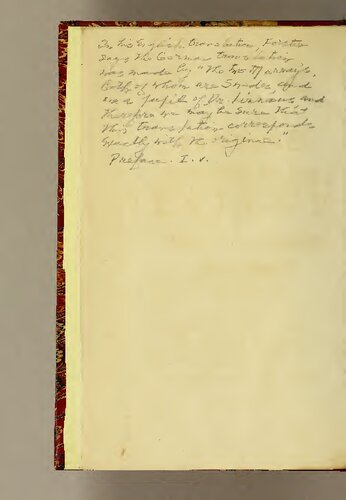 In his English translation, Forster
says the German translation
was made by "the two Murrays,
both of whom are Swedes, and
one a pupil of Dr. Linnaeus and
therefore we may be sure that
this translation corresponds
exactly with the original."
Preface. I. v.